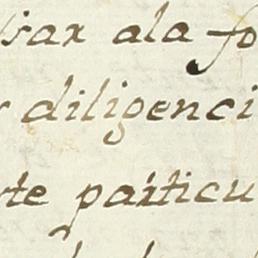 sax ala fo
diligenci
te particu